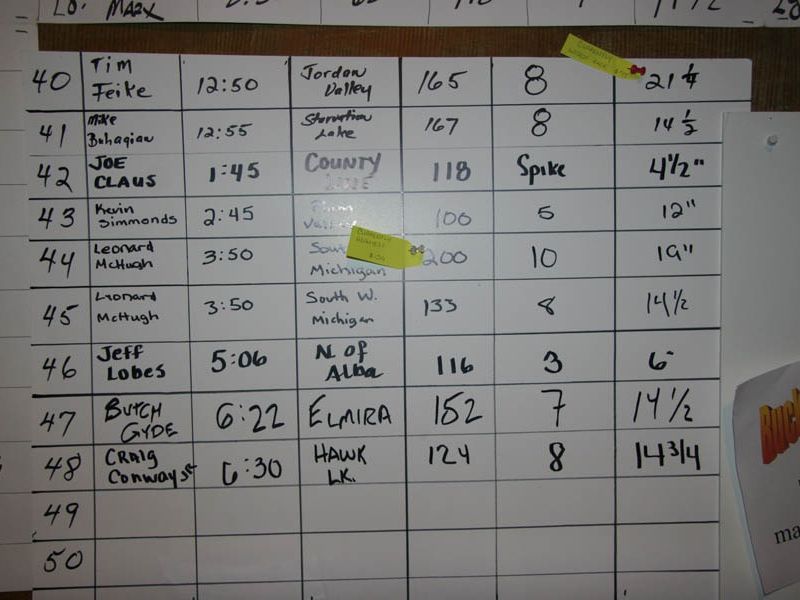 MARX
40 Tim Feike 12:50 Jordan Valley 165 8 21 1/4
41 Mike Buhagiar 12:55 Starvation Lake 167 8 14 1/2
42 JOE CLAUS 1:45 COUNTY 118 Spike 4 1/2"
43 Kevin Simmonds 2:45 100 5 12"
44 Leonard McHugh 3:50 Michigan 200 10 19"
45 Leonard McHugh 3:50 South W. Michigan 133 8 14 1/2
46 Jeff Lobes 5:06 N. of Alba 116 3 6"
47 BUTCH GYDE 6:22 ELMIRA 152 7 14 1/2
48 CRAIG Conway SR 6:30 HAWK LK. 124 8 14 3/4
49
50
Buck
ma